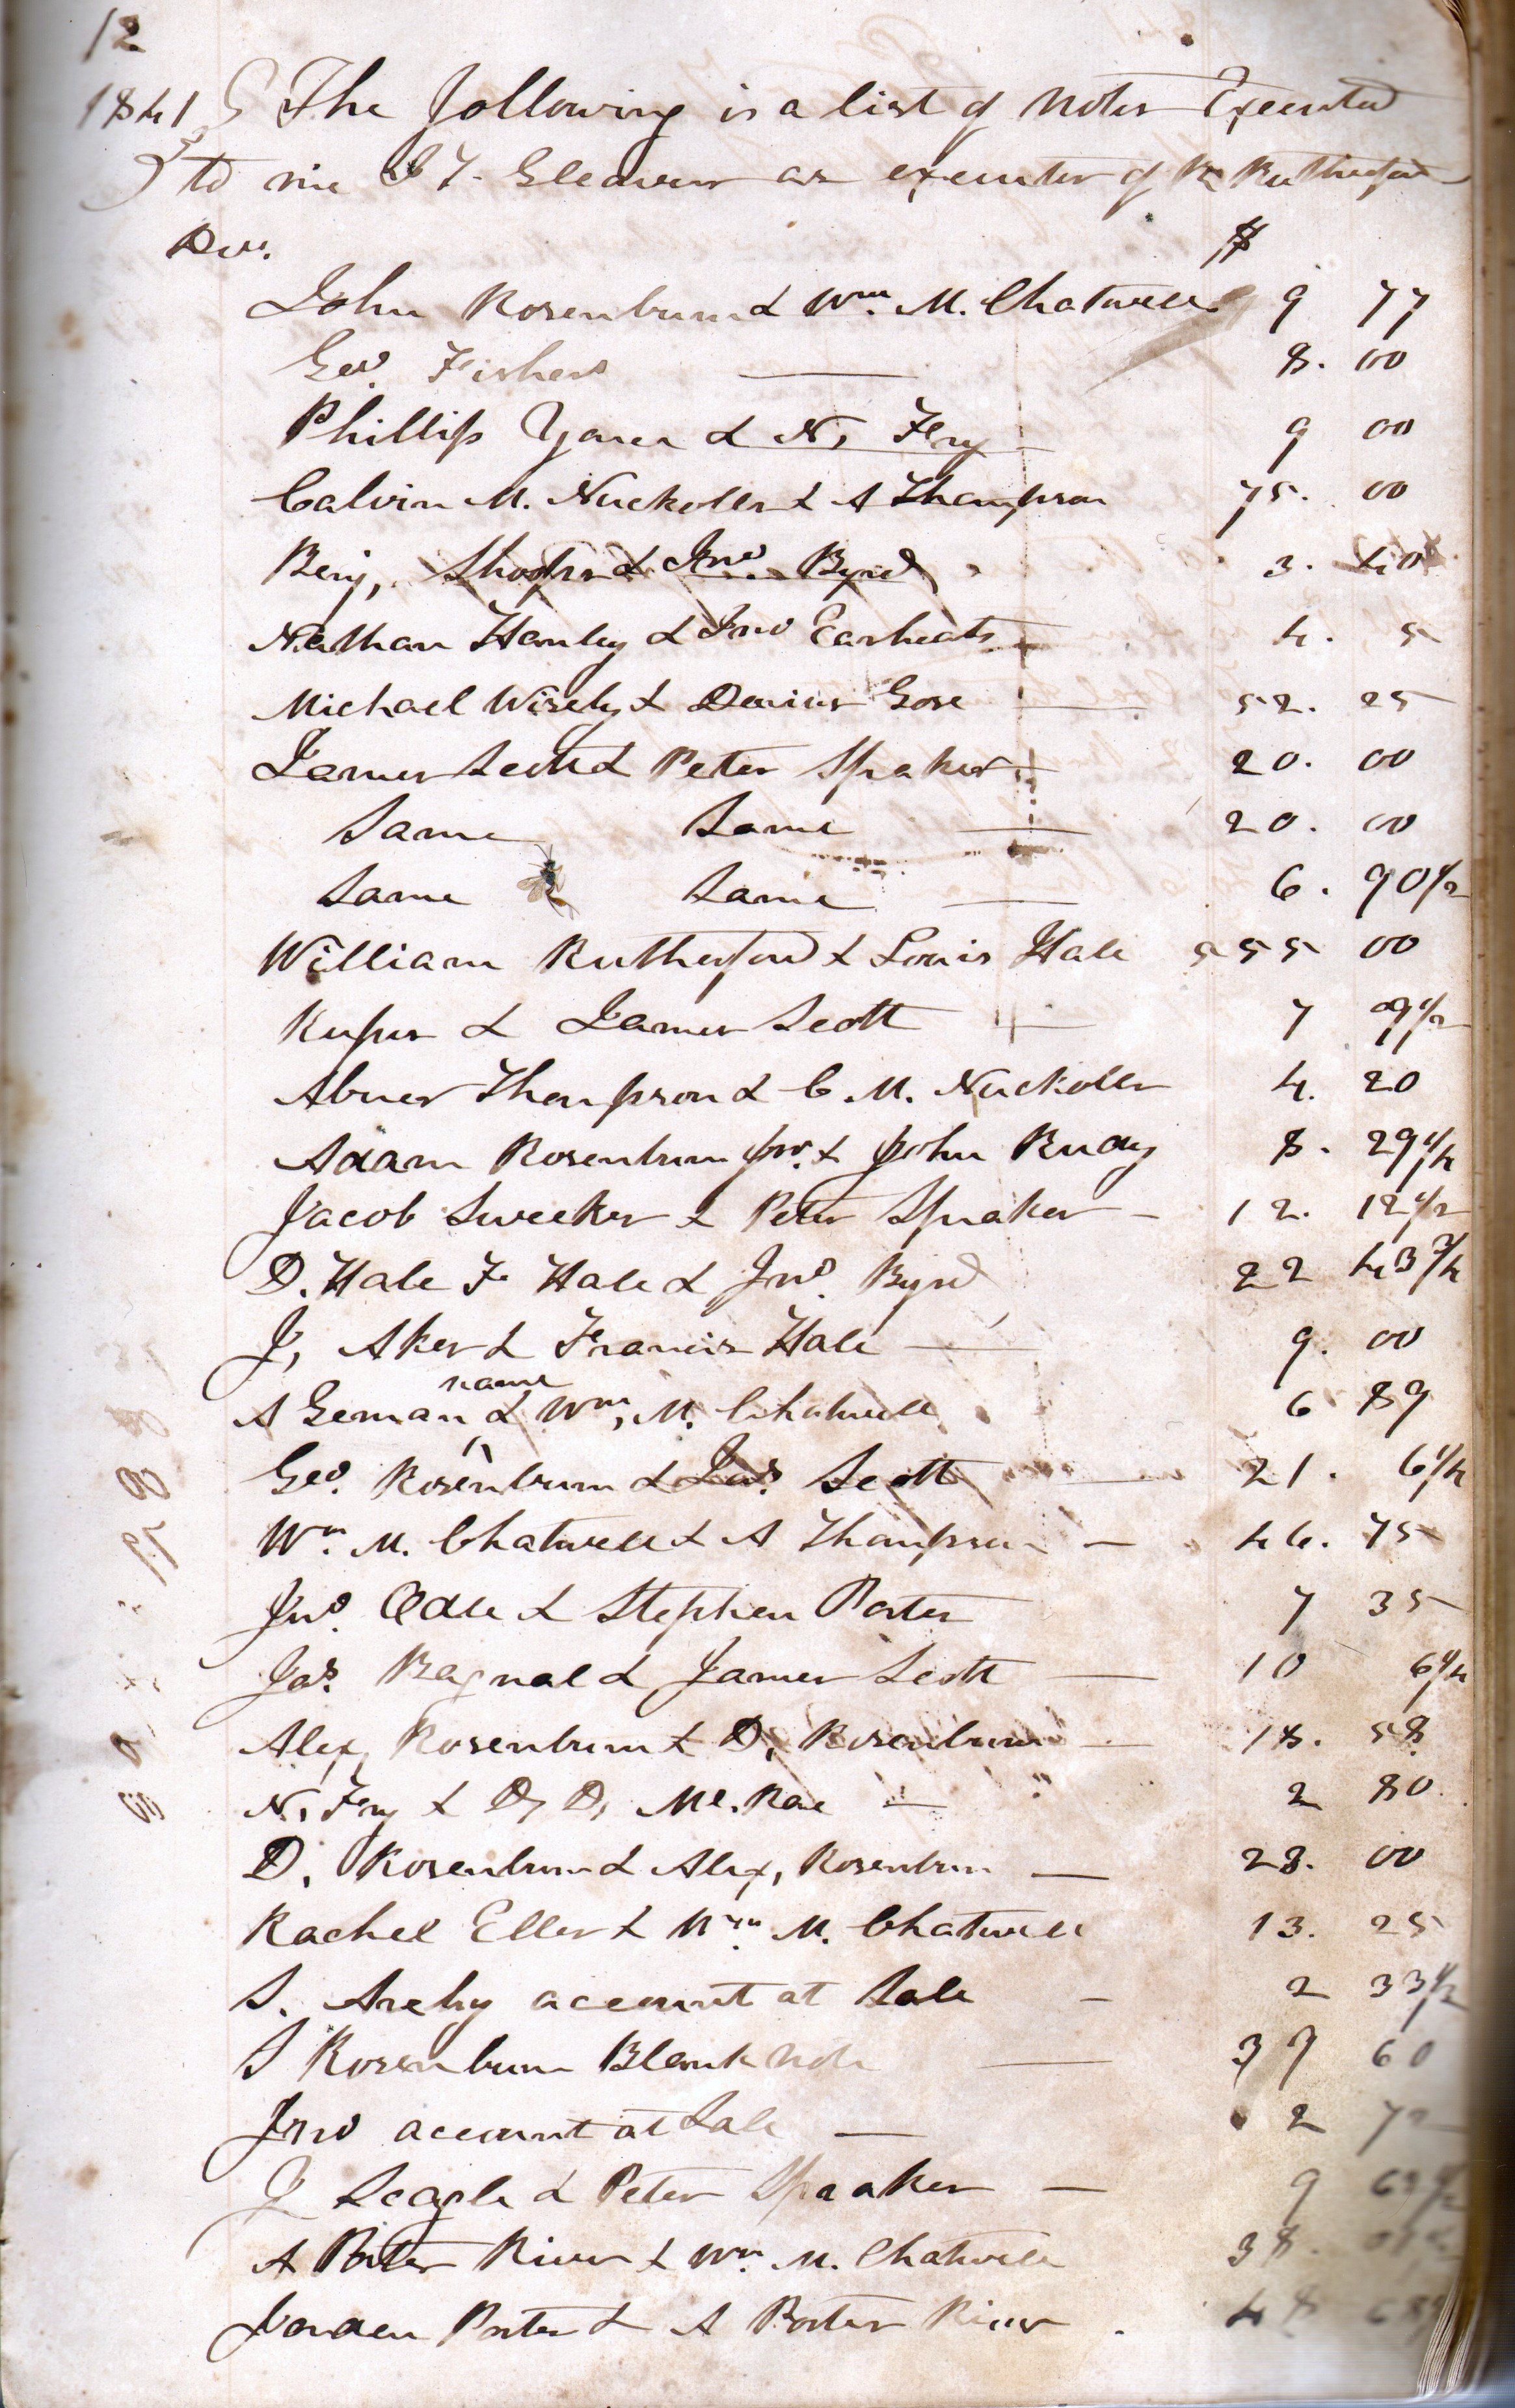 12
1841 The following is a list of Notes Executed
to me S T. Cleaver as executor of Rutherford
Dec.
$
John Rosenbum & Wm. M. Chatwell 9 77
Geo. Fisher 8. 00
Phillip & N, Fry 9 00
Calvin M. Nuckolls & A Thompson 75. 00
Benj, & Jno. Byrd 3. 40
Nathan Hanley & Jno Earheats 4. 5
Michael Wisely & Gose 52. 25
James Scott & Peter Spraker 20. 00
Same Same 20. 00
Same Same 6. 90 1/2
William Rutherford & Louis Hale 555 00
Rufus & James Scott 7 09 1/2
Abner Thompson & C. M. Nuckolls 4. 20
Adam Rosenbum Jnr. & John Rudy 8. 29 1/4
Jacob Sweeker & Peter Spraker 12. 12 1/2
D. Hale F Hale & Jno. Byrd 22 43 3/4
J, Aker & Francis Hale 9. 00
name
A Geman & Wm, M. Chatwell 6 89
Geo. Rosenbum & Jas. Scott 21. 6 1/4
Wm. M. Chatwell & A Thompson 46. 75
Jno. Odle & Stephen Porter 7 35
Jas. Bagnal & James Scott 10 6 1/4
Alex, Rosenbum & D, Rosenbum 18. 58
N, Fry & D, D, Mc. Rae 2 80
D, Rosenbum & Alex, Rosenbum 28. 00
Rachel Eller & Wm. M. Chatwell 13. 25
S. account at Sale 2 33 1/2
S Rosenbum Blank Note 39 60
Jno account at Sale 2
J Seagle & Peter Spraker 9
A Porter River & Wm. M. Chatwell 38.
Porter & A Porter River 48